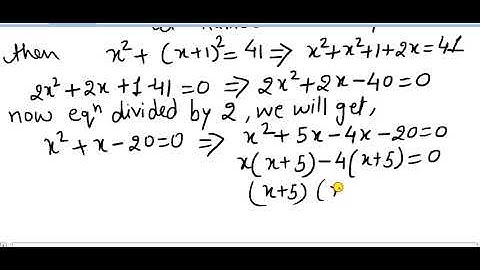 then x² + (x+1)² = 41 ⇒ x² + x² + 1 + 2x = 41
2x² + 2x + 1 - 41 = 0 ⇒ 2x² + 2x - 40 = 0
now eqⁿ divided by 2, we will get,
x² + x - 20 = 0 ⇒ x² + 5x - 4x - 20 = 0
x(x+5) - 4(x+5) = 0
(x+5) (